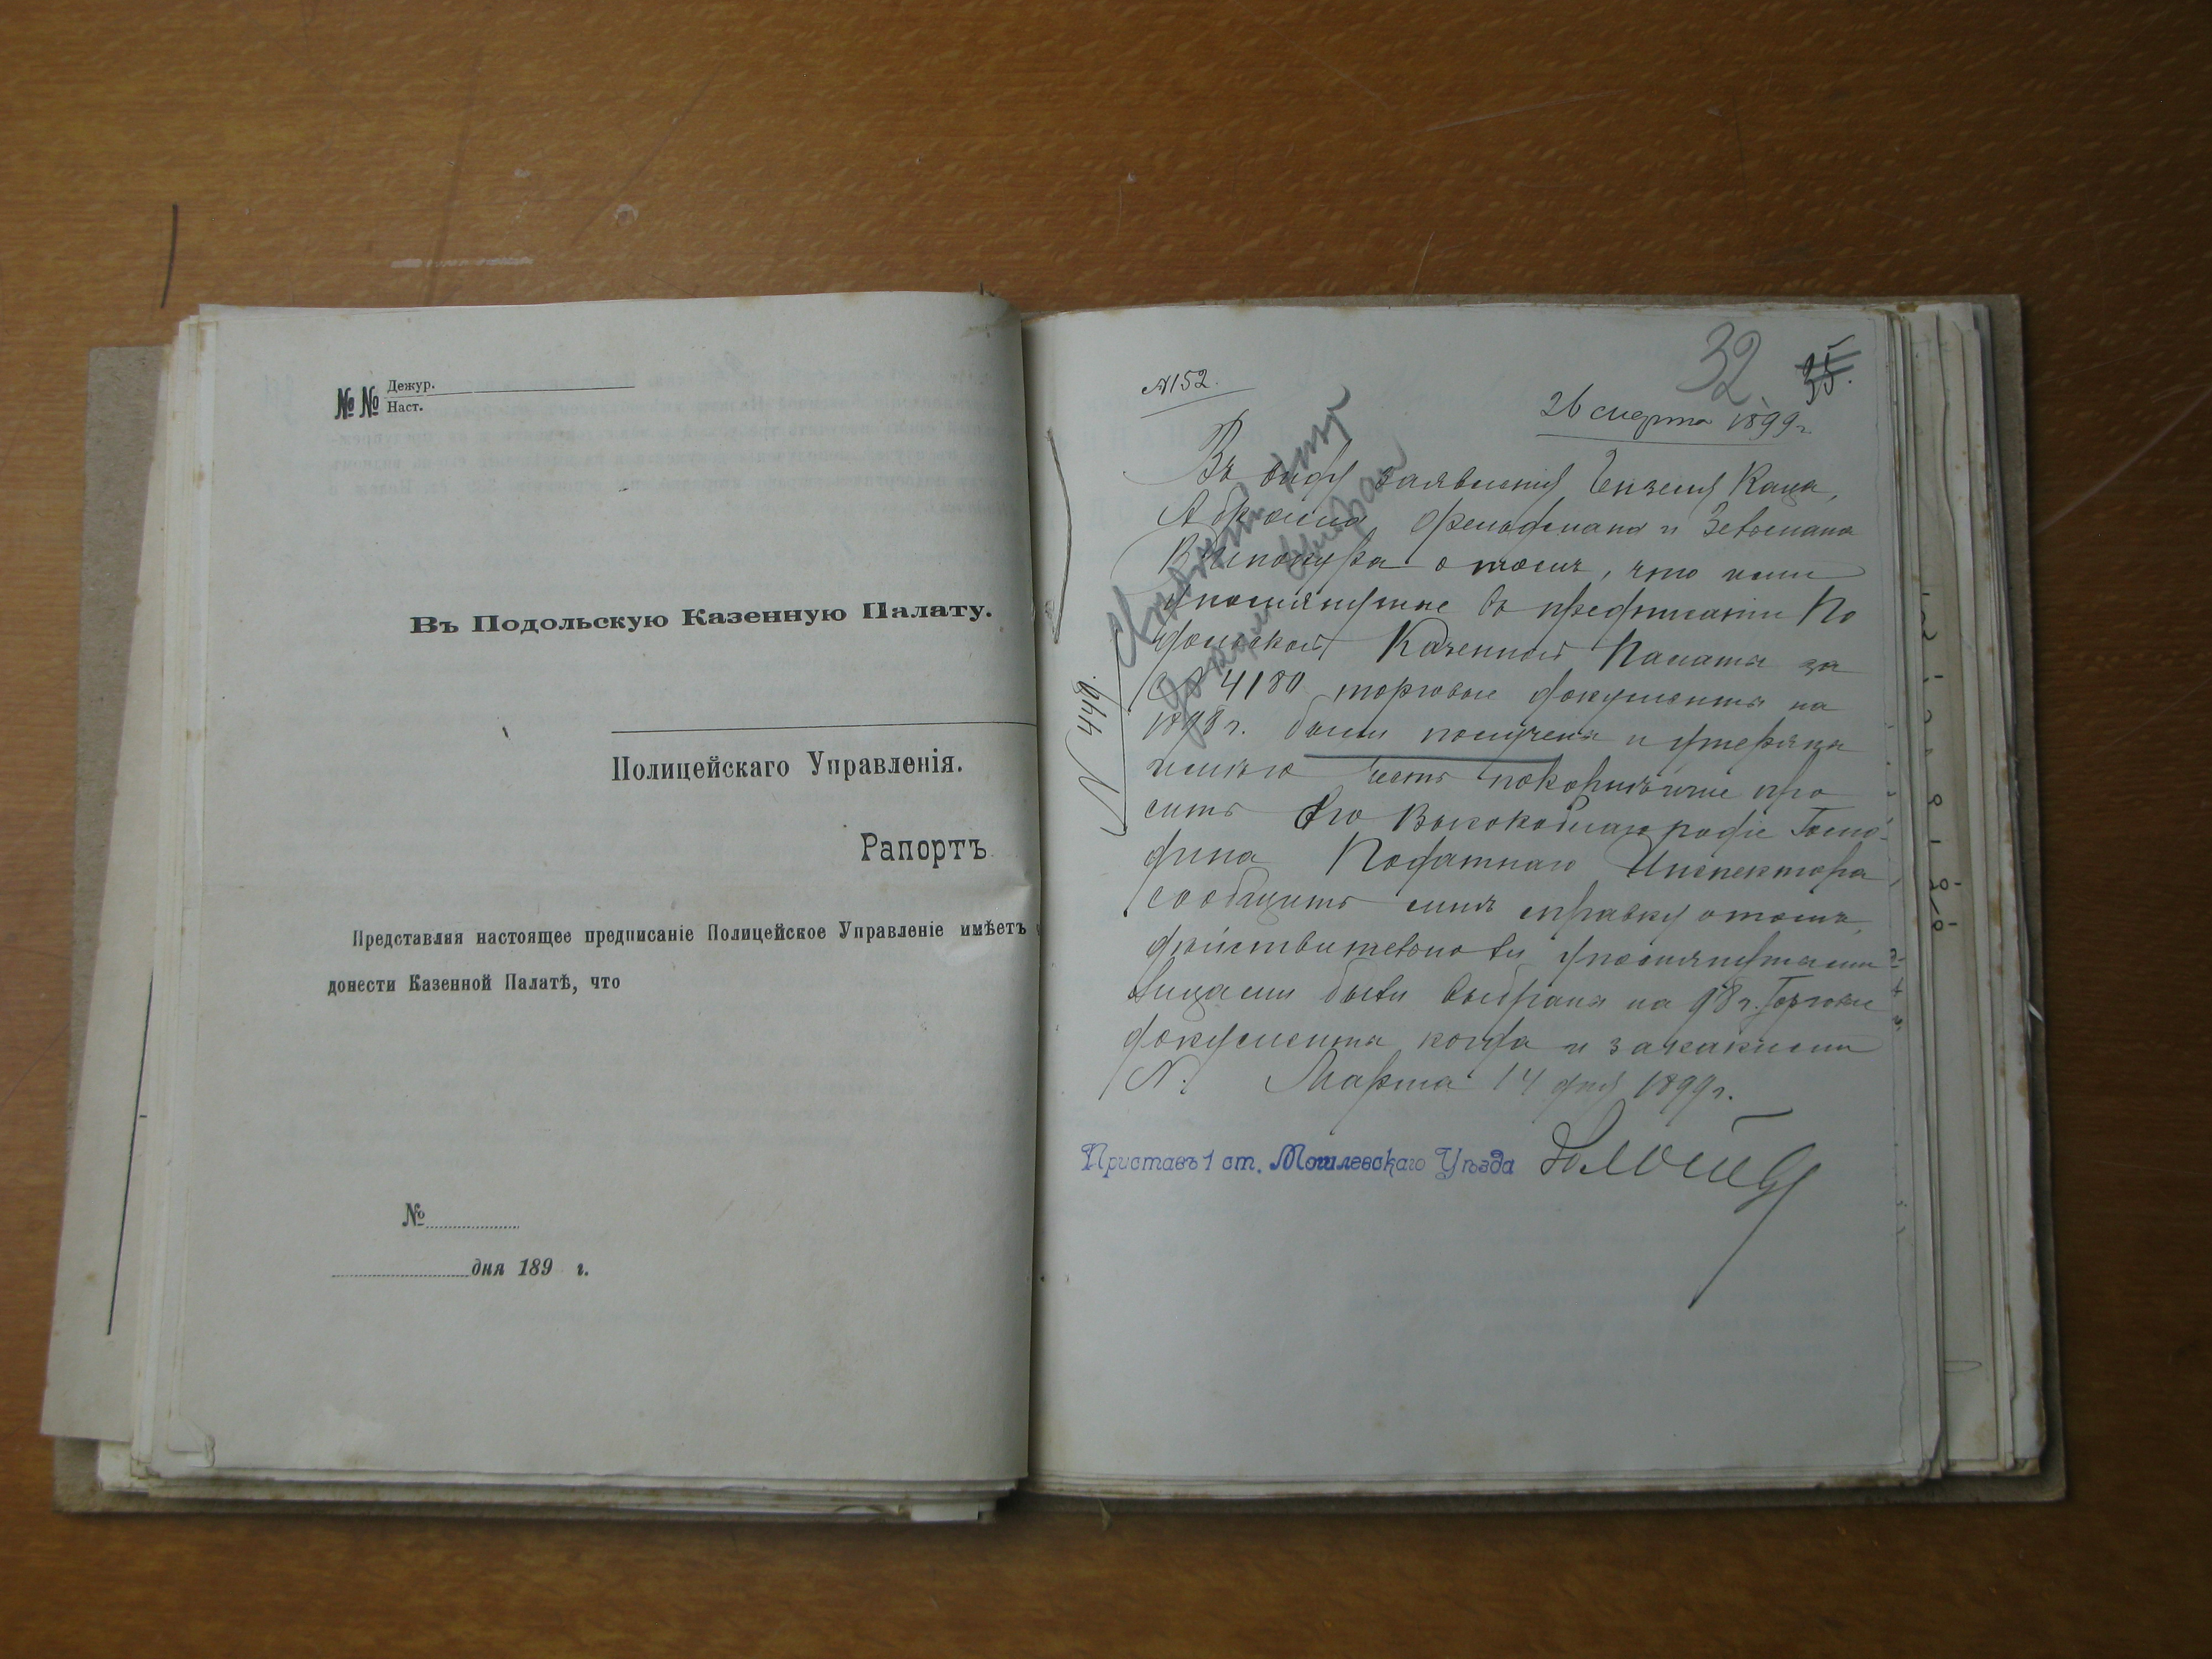 № № Дежур.
Наст.
Въ Подольскую Казенную Палату.
Полицейскаго Управленія.
Рапортъ
Представляя настоящее предписаніе Полицейское Управленіе имѣетъ
донести Казенной Палатѣ, что
№
дня 189 г.
32 35.
№152.
26 марта 1899 г.
Въ виду заявленія Ензеля Каца,
Абрама Фельдмана и Зельмана
Винокура о томъ, что ими
упомянутые въ предписаніи По
дольской Казенной Палаты за
№ 4180 торговые документы на
1898 г. были получены и утеряны
имѣю честь покорнѣйше про
сить Его Высокоблагородіе Госпо-
дина Податнаго Инспектора
сообщить мнѣ справку о томъ,
дѣйствительно ли упомянутыми
лицами были выбраны на 98 г. Торговые
документы, когда и за какими
№. Марта 14 дня 1899 г.
Приставъ 1 ст. Могилевскаго Уѣзда
N 449.